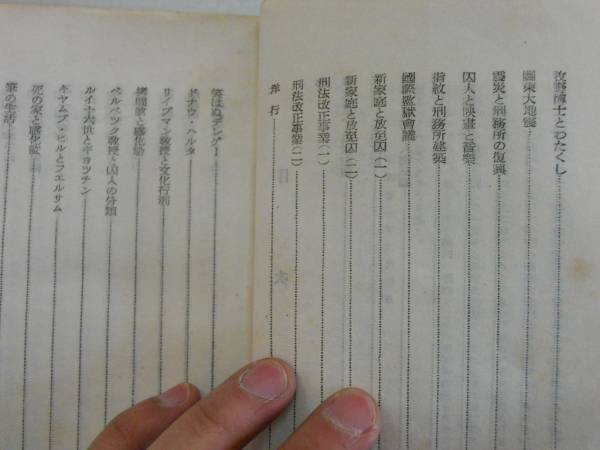 牧野博士とわたくし
關東大地震
震災と刑務所の復興
囚人と映畫と音樂
指紋と刑務所建築
國際監獄會議
新家庭と放免囚(一)
新家庭と放免囚(二)
刑法改正事業(一)
刑法改正事業(二)
洋行
笑はぬポレンゲー
ドナウ・ハルタ
リイプマン敎授と文化行刑
拷問臺と感化塔
ベルペツク敎授と囚人の分類
ルイ十六世とギヨツチン
キヤムプ・ヒルとフエルサム
死の家と感化監
筆の生活